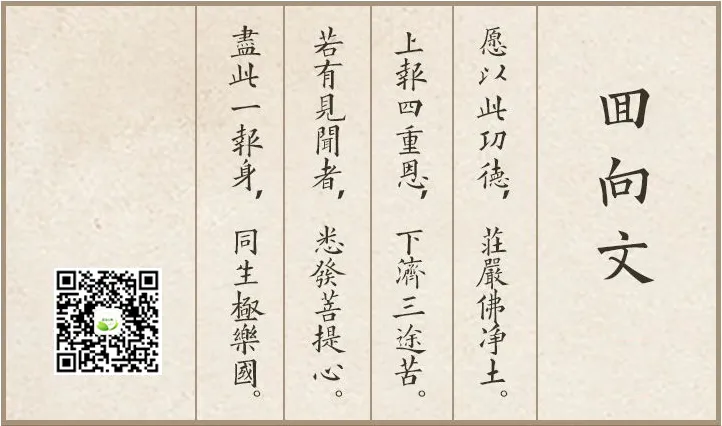 囬向文
愿以此功德，莊嚴佛净土。
上報四重恩，下濟三途苦。
若有見聞者，悉發菩提心。
盡此一報身，同生極樂國。